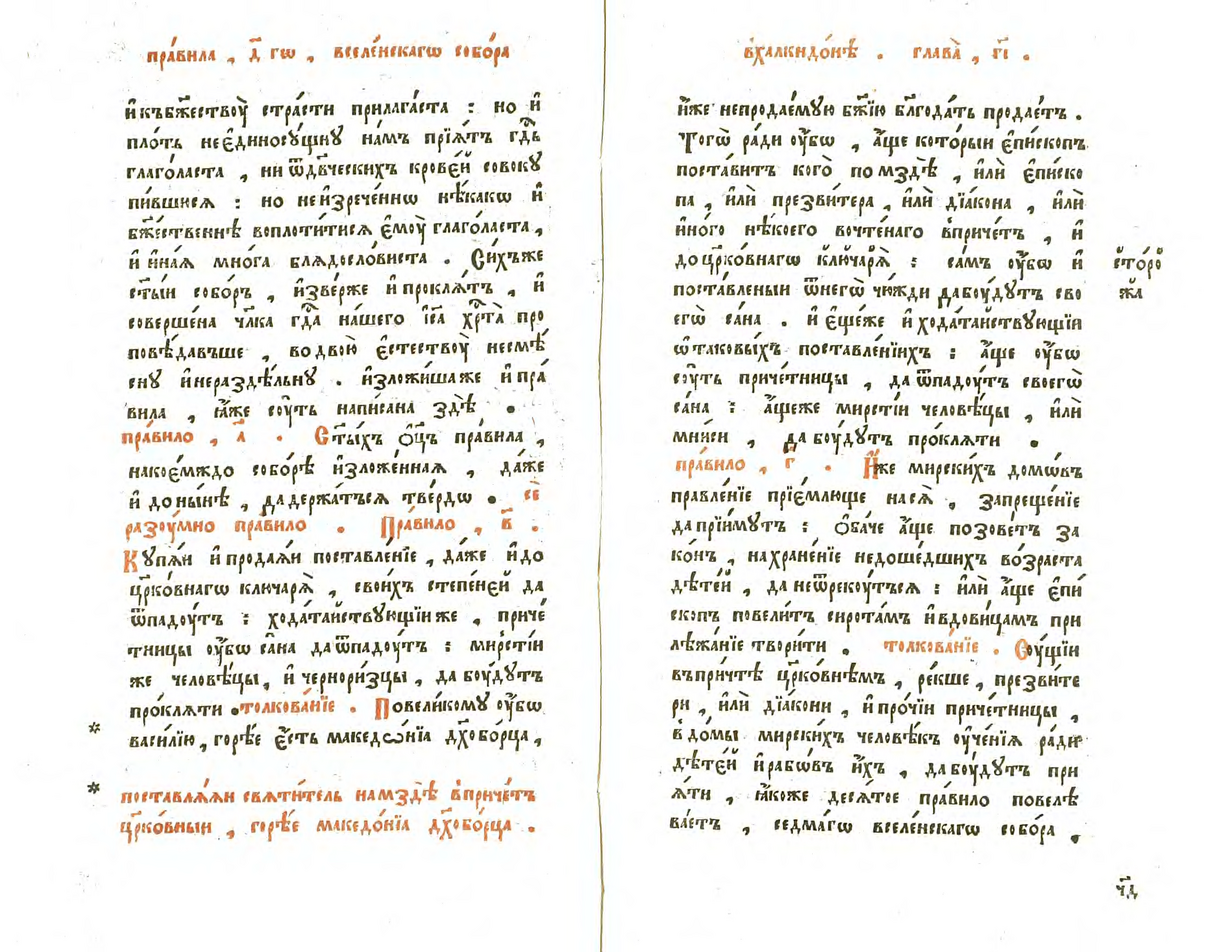 пра́вила , д҃ гѡ , вселе́нскагѡ собо́ра
и҆къбж҃ествоу̀ стра́сти прилага́ста : но и҆
пло́ть неє҆диносу́щну на́мъ прїѧ́тъ гдⷭ҇ь
глаго́ласта , ни ѿдв҃ческихъ крове́й совоку
пи́вшисѧ : но неи҆зрече́ннѡ нѣ́какѡ и҆
бж҃е́ственнѣ воплоти́тисѧ є҆моу̀ глаго́ласта ,
и҆ и҆на́ѧ мно́га блѧдосло́виста . Си́хъже
ст҃ы́и собо́ръ , и҆зве́рже и҆ проклѧ́тъ , и҆
соверше́на чл҃ка гдⷭ҇а на́шего і҆с҃а хрⷭ҇та̀ про
повѣ́давъше , во двою̀ є҆стествоу̀ несмѣ́
сну и҆нераздѣ́льну . и҆зложи́шаже и҆ пра́
вила , ꙗ҆́же соу́ть напи́сана здѣ̀ .
пра́вило , а҃ . Ст҃ы́хъ ѻ҆ц҃ъ пра́вила ,
накое́мждо собо́рѣ и҆зложе́ннаѧ , да́же
и҆ до ны́нѣ , да держа́тьсѧ тве́рдѡ . сѐ
разоу́мно пра́вило . Пра́вило , в҃ .
Купѧ́и и҆ продаѧ́и поставле́нїе , да́же и҆ до
цр҃ко́внагѡ ключарѧ̀ , свои́хъ степе́ней да
ѿпадоу́тъ : хода́тайствующїи же , приче́
тницы оу҆́бѡ са́на да ѿпадоу́тъ : ми́рстїи
же человѣ́цы , и҆ чернори́зцы , да боу́дутъ
про́клѧти . толкова́нїе . По вели́кому оу҆́бѡ
васи́лїю , го́рѣе є҆́сть македѡ́нїа дх҃обо́рца ,
* поставлѧ́ѧи свѧти́тель на мздѣ̀ в̾при́четъ
цр҃ко́вныи , го́рѣе македо́нїа дх҃обо́рца .
в̾халкидо́нѣ . глава̀ , г҃і .
и҆́же непродае́мую бж҃їю бл҃года́ть продае́тъ .
Тогѡ̀ ра́ди оу҆́бѡ , а҆́ще кото́рыи є҆пи́скопъ
поста́витъ кого̀ по мздѣ̀ , и҆лѝ є҆пи́ско
па , и҆лѝ презви́тера , и҆лѝ дїа́кона , и҆лѝ
и҆но́го нѣ́коего вочте́наго в̾при́четъ , и҆
до цр҃ко́внагѡ ключарѧ̀ : са́мъ оу҆́бѡ и҆
поста́вленыи ѿ негѡ̀ чю́жди да боу́дутъ сво
егѡ̀ са́на . и҆ є҆ще́же и҆ хода́тайствующїи
ѡ҆ таковы́хъ поставле́нїихъ : а҆́ще оу҆́бѡ
соу́ть приче́тницы , да ѿпадоу́тъ своегѡ̀
са́на : а҆́щеже ми́рстїи человѣ́цы , и҆лѝ
мни́си , да боу́дутъ про́клѧти .
пра́вило , г҃ . И҆́же мирски́хъ домѡ́въ
правле́нїе прїе́млюще на сѧ̀ , запреще́нїе
да прїи́мутъ : ѻ҆ба́че а҆́ще позове́тъ за
ко́нъ , на хране́нїе недоше́дшихъ во́зраста
дѣте́й , да не ѿреку́тьсѧ : и҆лѝ а҆́ще є҆пи́
скопъ повели́тъ сирота́мъ и҆ вдови́цамъ при
лѣжа́нїе твори́ти . толкова́нїе . Соу́щїи
въ при́чтѣ цр҃ко́внѣмъ , ре́кше , презви́те
ри , и҆лѝ дїа́кони , и҆ про́чїи приче́тницы ,
в̾ до́мы мирски́хъ человѣ́къ оу҆че́нїѧ ра́ди
дѣте́й и҆ рабѡ́въ и҆́хъ , да боу́дутъ при
ѧ́ти , ꙗ҆́коже десѧ́тое пра́вило повелѣ
ва́етъ , седма́гѡ вселе́нскагѡ собо́ра .
ч҃д